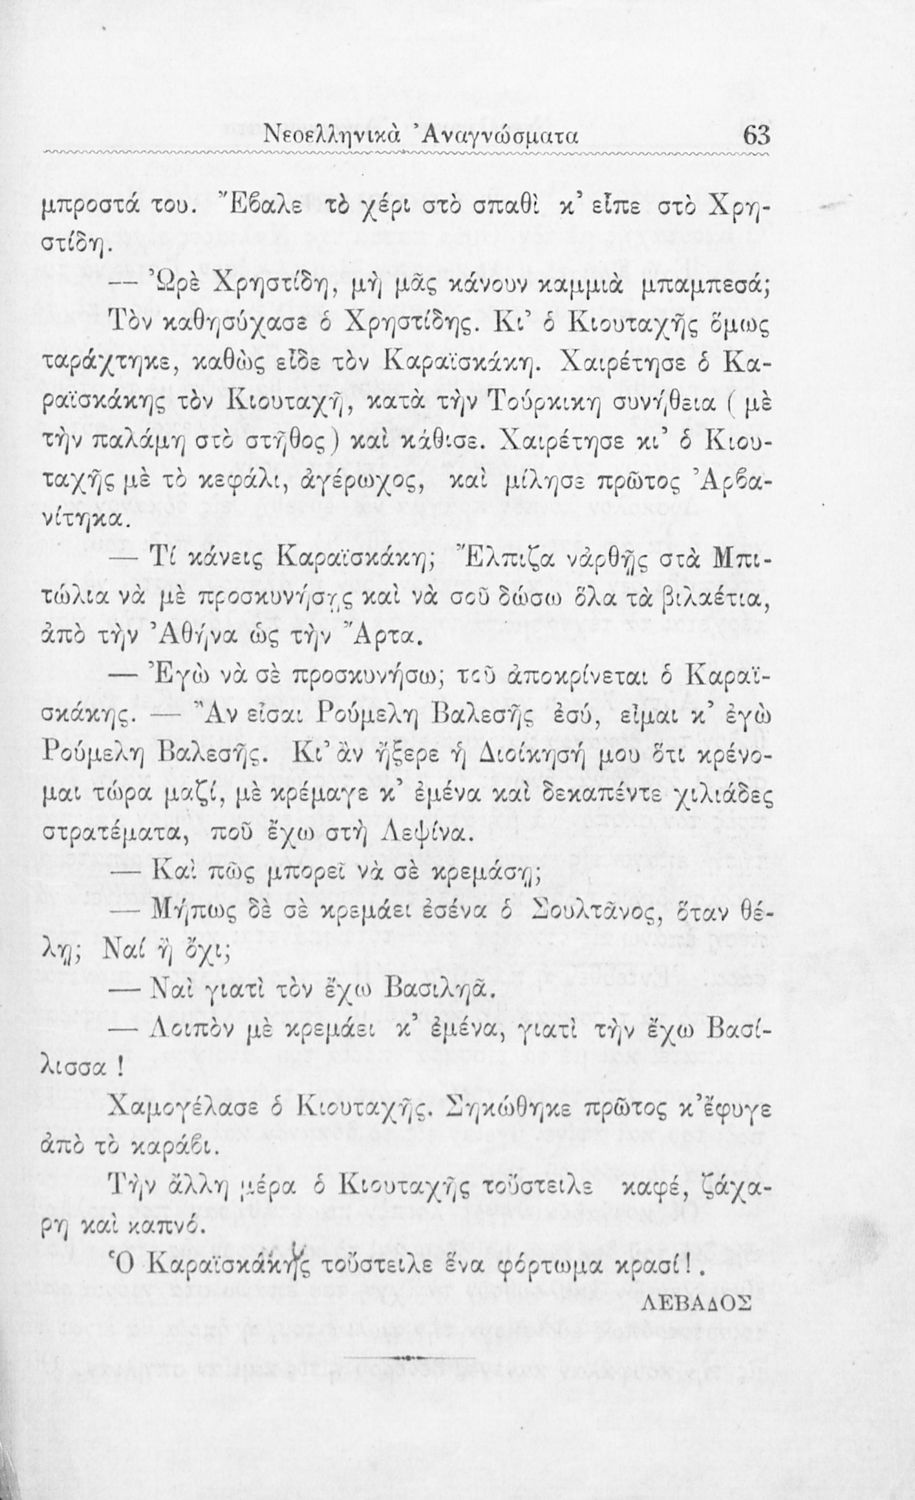 Νεοελληνικὰ Ἀναγνώσματα 63
μπροστά του. Ἔβαλε τὸ χέρι στὸ σπαθὶ κ’ εἶπε στὸ Χρη-
στίδη.
— Ὠρὲ Χρηστίδη, μὴ μᾶς κάνουν καμμιὰ μπαμπεσά;
Τὸν καθησύχασε ὁ Χρηστίδης. Κι’ ὁ Κιουταχῆς ὅμως
ταράχτηκε, καθὼς εἶδε τὸν Καραϊσκάκη. Χαιρέτησε ὁ Κα-
ραϊσκάκης τὸν Κιουταχῆ, κατὰ τὴν Τούρκικη συνήθεια ( μὲ
τὴν παλάμη στὸ στῆθος) καὶ κάθισε. Χαιρέτησε κι’ ὁ Κιου-
ταχῆς μὲ τὸ κεφάλι, ἀγέρωχος, καὶ μίλησε πρῶτος Ἀρβα-
νίτηκα.
— Τί κάνεις Καραϊσκάκη; Ἔλπιζα νἀρθῇς στὰ Μπι-
τώλια νὰ μὲ προσκυνήσῃς καὶ νὰ σοῦ δώσω ὅλα τὰ βιλαέτια,
ἀπὸ τὴν Ἀθήνα ὡς τὴν Ἄρτα.
— Ἐγὼ νὰ σὲ προσκυνήσω; τοῦ ἀποκρίνεται ὁ Καραϊ-
σκάκης. — Ἂν εἶσαι Ρούμελη Βαλεσῆς ἐσύ, εἶμαι κ’ ἐγὼ
Ρούμελη Βαλεσῆς. Κι’ ἂν ἤξερε ἡ Διοίκησή μου ὅτι κρένο-
μαι τώρα μαζί, μὲ κρέμαγε κ’ ἐμένα καὶ δεκαπέντε χιλιάδες
στρατέματα, ποῦ ἔχω στὴ Λεψίνα.
— Καὶ πῶς μπορεῖ νὰ σὲ κρεμάσῃ;
— Μήπως δὲ σὲ κρεμάει ἐσένα ὁ Σουλτᾶνος, ὅταν θέ-
λῃ; Ναί ἢ ὄχι;
— Ναὶ γιατὶ τὸν ἔχω Βασιληᾶ.
— Λοιπὸν μὲ κρεμάει κ’ ἐμένα, γιατὶ τὴν ἔχω Βασί-
λισσα !
Χαμογέλασε ὁ Κιουταχῆς. Σηκώθηκε πρῶτος κ’ἔφυγε
ἀπὸ τὸ καράβι.
Τὴν ἄλλη μέρα ὁ Κιουταχῆς τοὔστειλε καφέ, ζάχα-
ρη καὶ καπνό.
Ὁ Καραϊσκάκης τοὔστειλε ἕνα φόρτωμα κρασί!.
ΛΕΒΑΔΟΣ